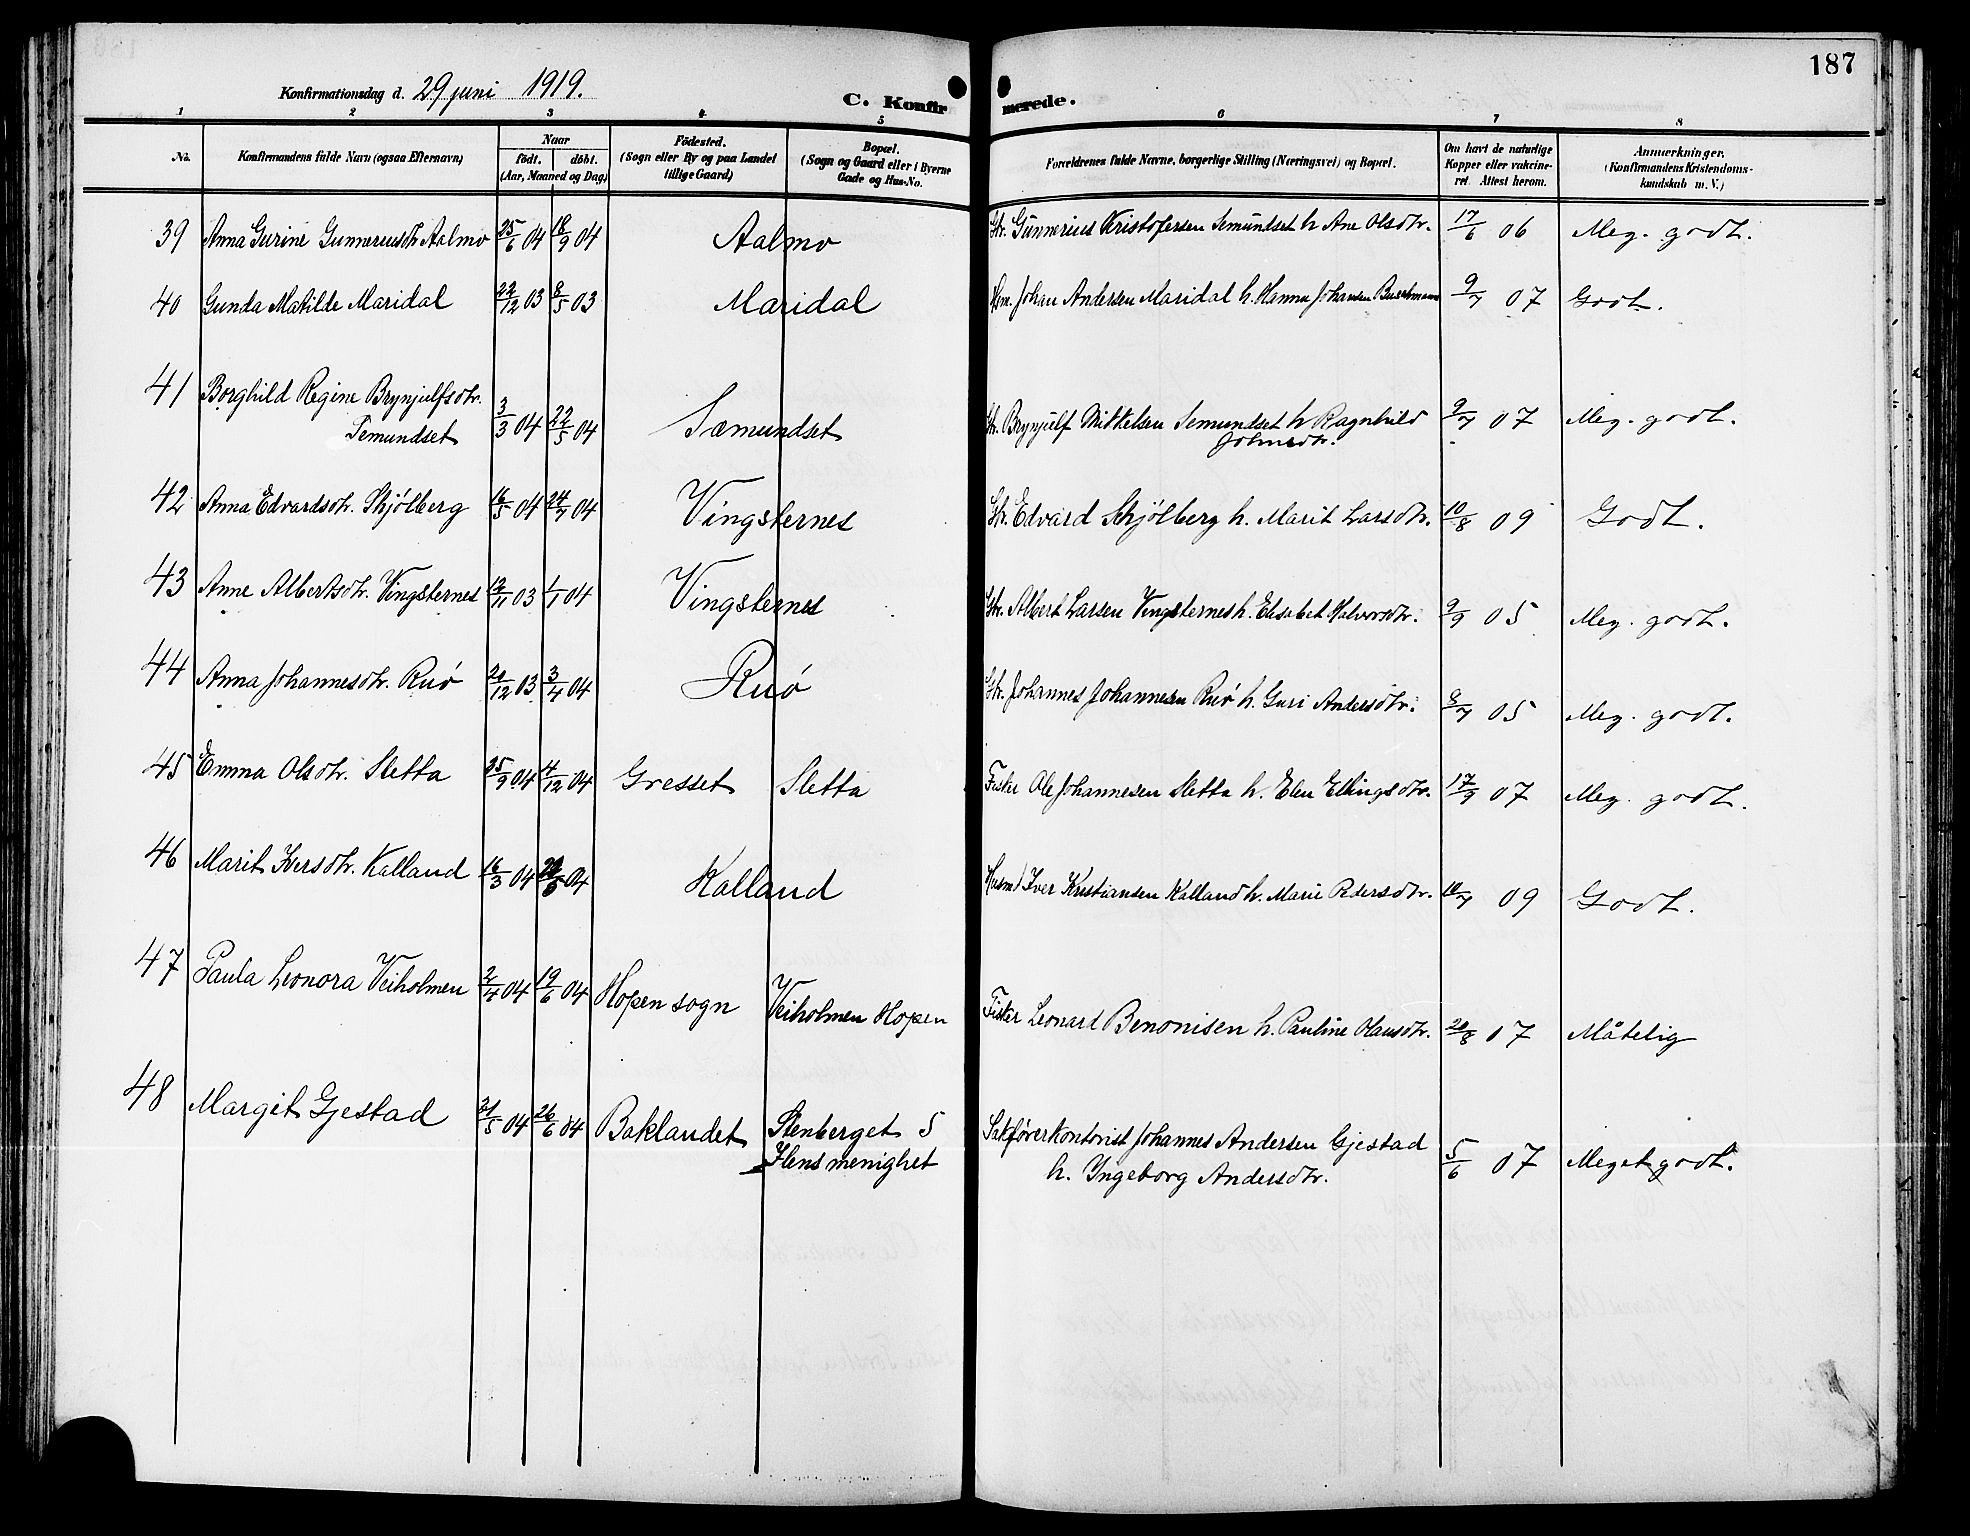 187
Konfirmationsdag d. 29 juni 1919.
C. Konfirmerede.
1 2 3 4 5 6 7 8
No. Konfirmandens fulde Navn (ogsaa Efternavn) Naar født. døbt. (Aar, Maaned og Dag) Fødested. (Sogn eller By og paa Landet tillige Gaard) Bopæl. (Sogn og Gaard eller i Byerne Gade og Hus-No. Forældrenes fulde Navne, borgerlige Stilling (Næringsvei) og Bopæl. Om havt de naturlige Kopper eller vakcineret. Attest herom. Anmærkninger. (Konfirmandens Kristendomskundskab m. V.)
39 Anna Gurine Gunneriusdtr Aalmo 25/6 04 18/9 04 Aalmo Str. Gunnerius Kristofersen Semundset h Ane Olsdtr. 17/6 06 Meg. godt.
40 Gunda Matilde Maridal 22/12 03 8/5 03 Maridal Johan Andersen Maridal h. Hanna Johansen 9/7 07 Godt.
41 Borghild Regine Brynjulfsdtr.
Semundset 3/3 04 22/5 04 Sæmundset Str. Brynjulf Mikkelsen Semundset h Ragnhild 9/7 07 Meg. godt.
Johnsdtr.
42 Anna Edvardsdtr. Skjølberg 16/5 04 24/7 04 Vingsternes Str. Edvard Skjølberg h. Marit Larsdtr. 10/8 09 Godt.
43 Anne Albertsdtr. Vingsternes 12/11 03 1/1 04 Vingsternes Str. Albert Larsen Vingsternes h. Elisabet Halvorsdtr. 9/9 05 Meg. godt.
44 Anna Johannesdtr. Ruø 20/12 03 3/4 04 Ruø Str. Johannes Johannesen Ruø h. Guri Andersdtr. 8/7 05 Meg. godt.
45 Emma Olsdtr. Sletta 25/9 04 4/12 04 Gresset Sletta Fisker Ole Johannesen Sletta h. Elen Ellingsdtr. 17/9 07 Meg. godt.
46 Marit Iversdtr. Kalland 16/3 04 04 Kalland Husmd Iver Kristiansen Kalland h. Marie Pedersdtr. 09 Godt.
47 Paula Leonora Veiholmen 2/4 04 19/6 04 Hopen sogn Veiholmen Hopen Fisker Leonard Benonisen h. Pauline Olausdtr. 20/8 07 Måtelig
48 Margit Gjestad 31/5 04 26/6 04 Baklandet Stenberget 5 Sakførerkontorist Johannes Andersen Gjestad
Ilens menighet h. Ingeborg Andersdtr. 5/6 07 Meget godt.